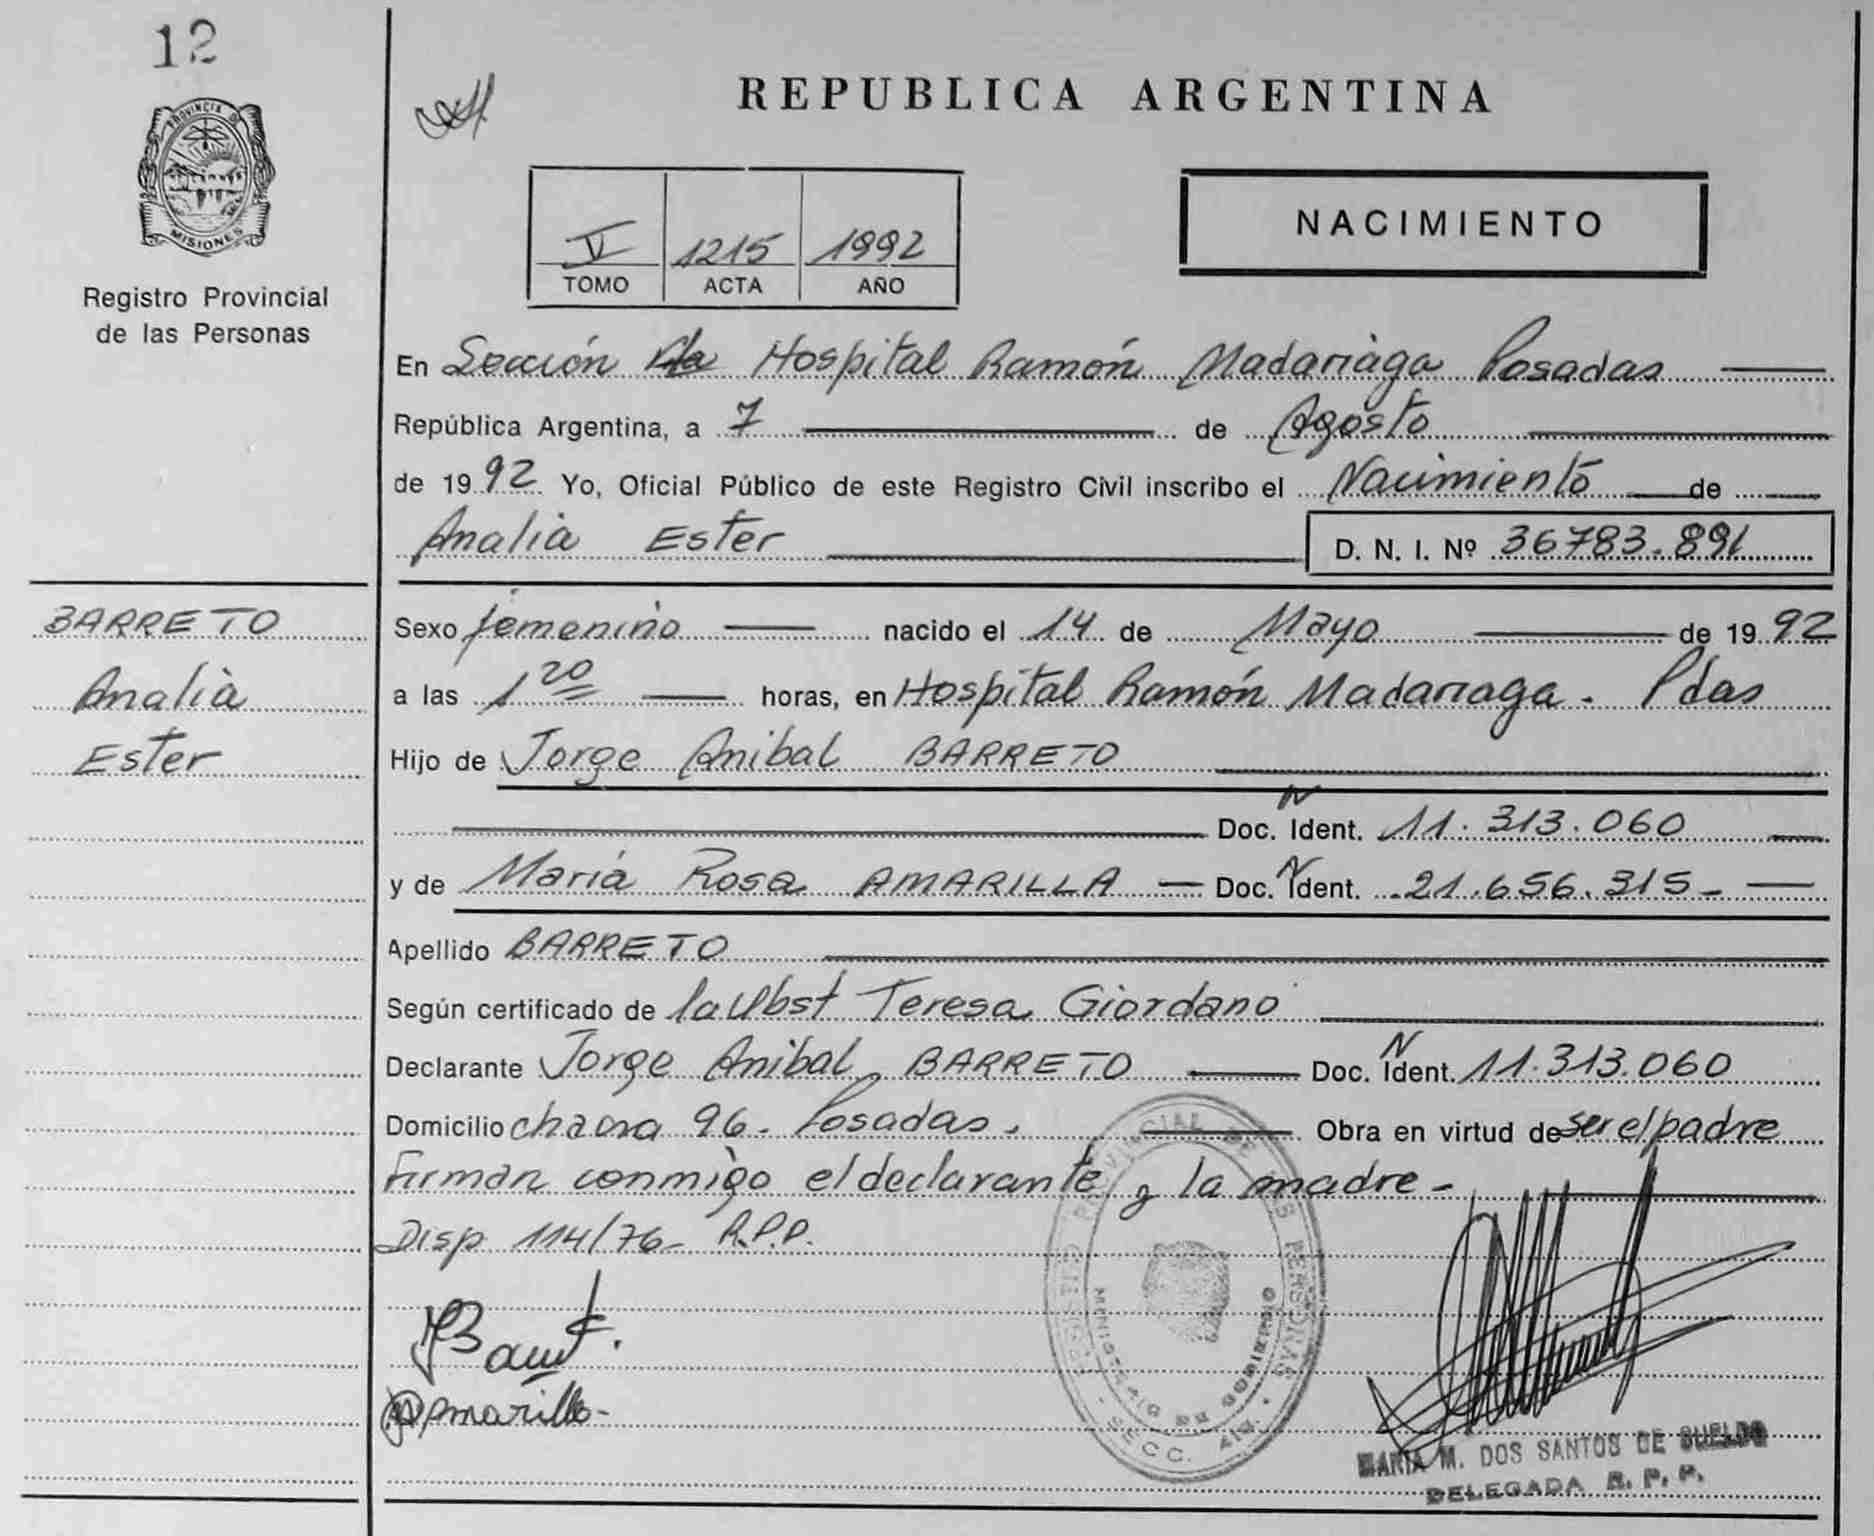 12
PROVINCIA DE
MISIONES
Registro Provincial
de las Personas
REPUBLICA ARGENTINA
V 1215 1992
TOMO ACTA AÑO
NACIMIENTO
En Sección Hospital Ramón Madariaga Posadas
República Argentina, a 7 de Agosto
de 1992 Yo, Oficial Público de este Registro Civil inscribo el Nacimiento de
Analia Ester D. N. I. Nº 36783.891
BARRETO
Analia
Ester
Sexo femenino nacido el 14 de Mayo de 1992
a las 1 20 horas, en Hospital Ramón Madariaga. Pdas
Hijo de Jorge Anibal BARRETO
N
Doc. Ident. 11.313.060
y de María Rosa AMARILLA Doc. N Ident. 21.656.315-
Apellido BARRETO
Según certificado de la Obst Teresa Giordano
Declarante Jorge Anibal BARRETO Doc. N Ident. 11.313.060
Domicilio chacra 96. Posadas. Obra en virtud de ser el padre
Firman conmigo el declarante y la madre-
Disp 114/76- R.P.P.
Amarilla-
REGISTRO PROVINCIAL DE LAS PERSONAS
MINISTERIO DE GOBIERNO
SECC. 4ta.
MARIA M. DOS SANTOS DE SUELDO
DELEGADA R. P. P.